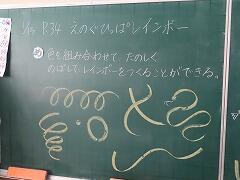 1/15 P.34 えのぐひっぱレインボー
め 色を組み合わせて、たのしく
のばして、レインボーをつくることができる。